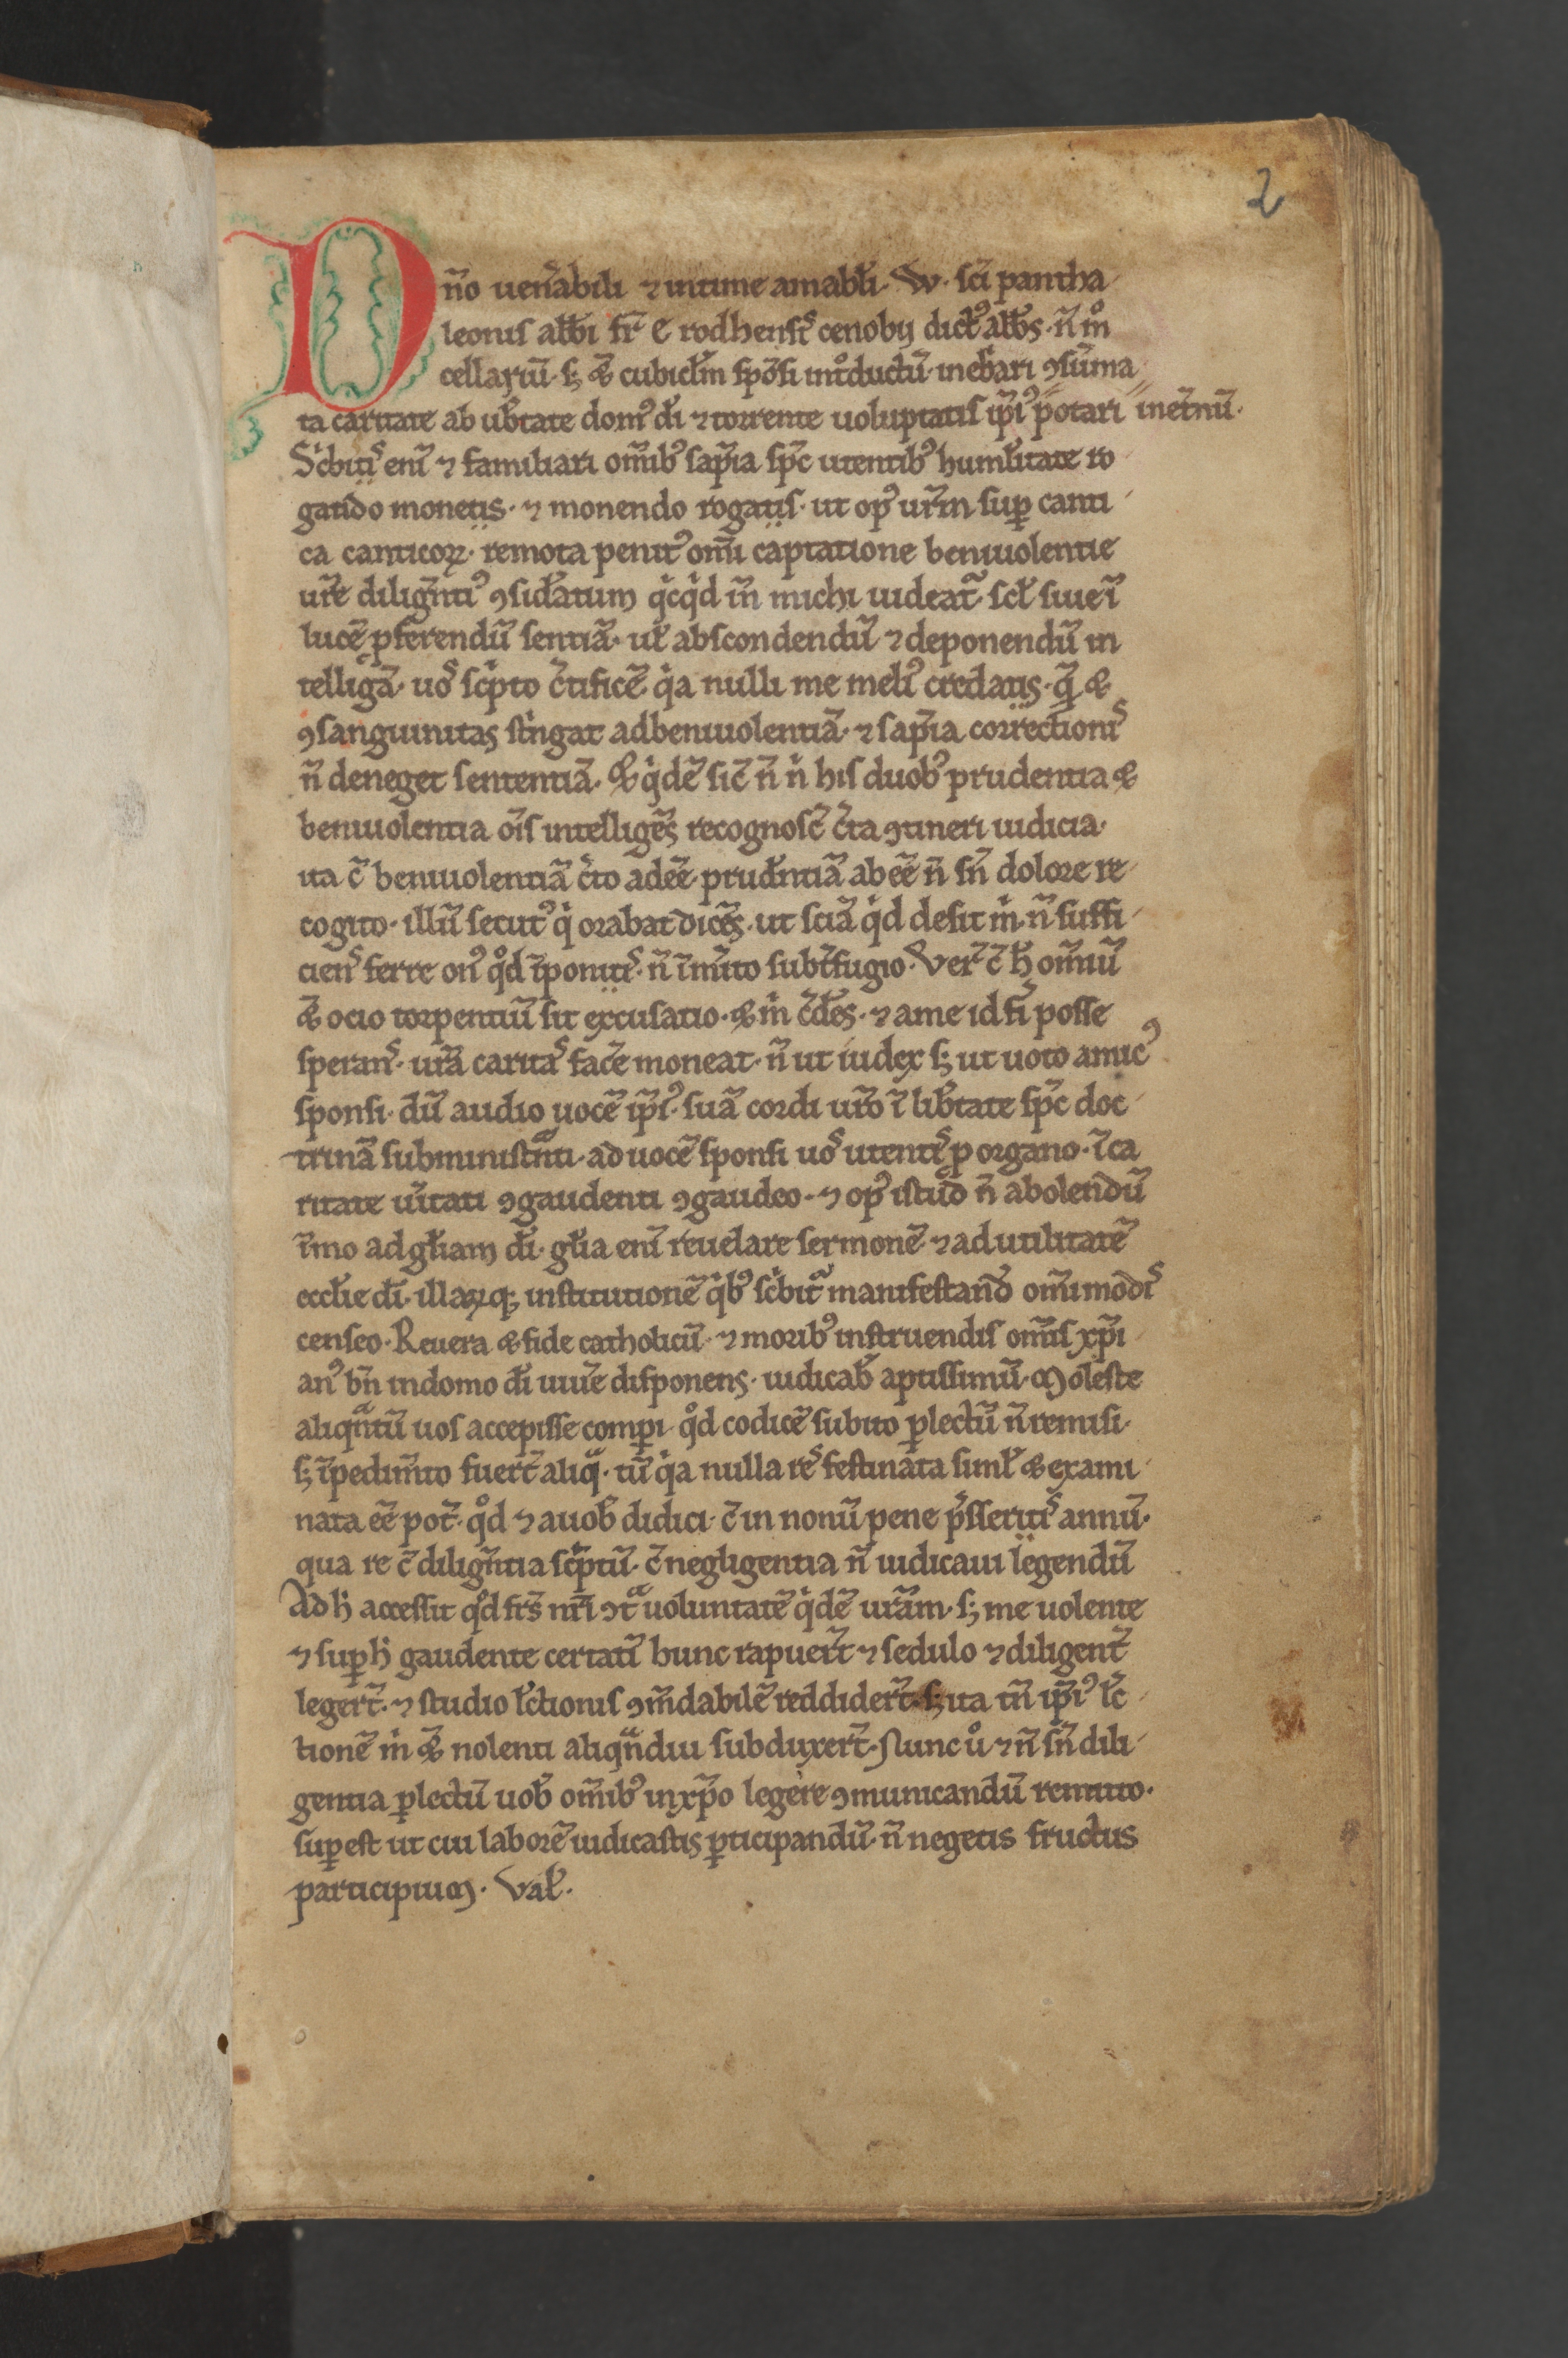 2
Dn̄o uen̄abili ⁊ intime amabl̄i. W. sc̄i pantha
leonis abb̄i fr̄ E rodhensis cenobij dict᷒ abb̄s. n̄ in
cellariū. s; & cubicl̄m spōsi int̊ductū. inebͥari ꝯsūma
ta caritate ab ub̄tate dom᷒ dī ⁊ torrente uoluptatis ip̄i᷒ potari inet̄nū.
Scͥbitis enī ⁊ familiari om̄ib᷒ sap̄ia sp̄c utentib᷒ humil̄itate ro
gando monetis. ⁊ monendo rogatis. ut op᷒ ur̄m suꝑ canti
ca canticoꝝ. remota penit᷒ om̄i captatione beniuolentie
ur̄e diliḡnti᷒ ꝯsid̄atum qͥcqͥd in̄ michi uideat᷑. scl̄ siue ī
lucē pferendū sentiā. ul̄ abscondendū ⁊ deponendū in
telligā. uos scͥpto c̄tificē. qͥa nulli me meli᷒ credatis. q̄ &
ꝯsanguinitas stͥngat adbeniuolentiā. ⁊ sap̄ia correctionis
n̄ deneget sententiā. & qͥdē sic̄ n̄ nͥ his duob᷒ prudentia &
beniuolentia ōis intelligēs recognosc̄ c̄ta ꝯtineri iudicia.
ita c̄ beniuolentiā c̄to adēē. prud̄ntiā abēē n̄ sn̄ dolore re
cogito. illū secut᷒ qͥ orabat dicēs. ut sciā qͥd desit mͥ. n̄ suffi
ciens ferre on᷒ qd̊ īponitis. n̄ īm̄ito subt̄fugio. Ver̄ c̄ h̄ om̄iū
& ocio torpentiū sit excusatio. & mͥ c̄des. ⁊ ame id fī posse
sperans. ur̄a caritas fac̄e moneat. n̄ ut iudex s; ut uoto amic᷒
sponsi. dū audio uocē ip̄i᷒. suā cordi ur̄o ī lib̄tate sp̄c doc
trinā subministn̄ti. ad uocē sponsi uos utentis ꝓ organo. ī ca
ritate ūitati ꝯgaudenti ꝯgaudeo. ⁊ op᷒ istud n̄ abolendū
īmo ad gl̄iam dī. gl̄ia enī reuelare sermonē. ⁊ ad utilitatē
eccl̄ie dī. illaꝝq; institutionē qͥb᷒ scͥbit᷑ manifestand̄ om̄imodis
censeo. Reuera & fide catholicū. ⁊ morib᷒ instruendis om̄is xp̄i
an᷒ bn̄ indomo dī uiue disponens. iudicab̄ aptissimū. Moleste
aliqn̄tū uos accepisse comꝑi. qd̊ codicē subito ꝑlectū n̄ remisi.
s; īpedim̄to fuert̄ aliq̄. tū qͥa nulla res festinata simul̄ & exami
nata ēē pot̄. qd̊ ⁊ auob̄ didici. c̄ in nonū pene p̄sseritis annū.
qua re c̄ diliḡntia scͥptū. c̄ negligentia n̄ iudicaui legendū
Ad h̄ accessit qd̊ frs̄ nr̄i ꝯt̄ uoluntatē qͥdē ur̄am. s; me uolente
⁊ suꝑ h̄ gaudente certatī hunc rapuert̄ ⁊ sedulo ⁊ diligent̄
legert̄. ⁊ studio lc̄tionis ꝯm̄dabilē reddidert̄. s; ita tn̄ ip̄i᷒ lc̄
tionē mͥ & nolenti aliqn̄diu subduxert̄. Nunc ů ⁊ n̄ sn̄ dili
gentia ꝑlectū uob̄ om̄ib᷒ inxp̄o legere ꝯmunicandū remitto.
suꝑest ut cui laborē iudicastis ꝑticipandū. n̄ negetis fructus
participium. Val̄.